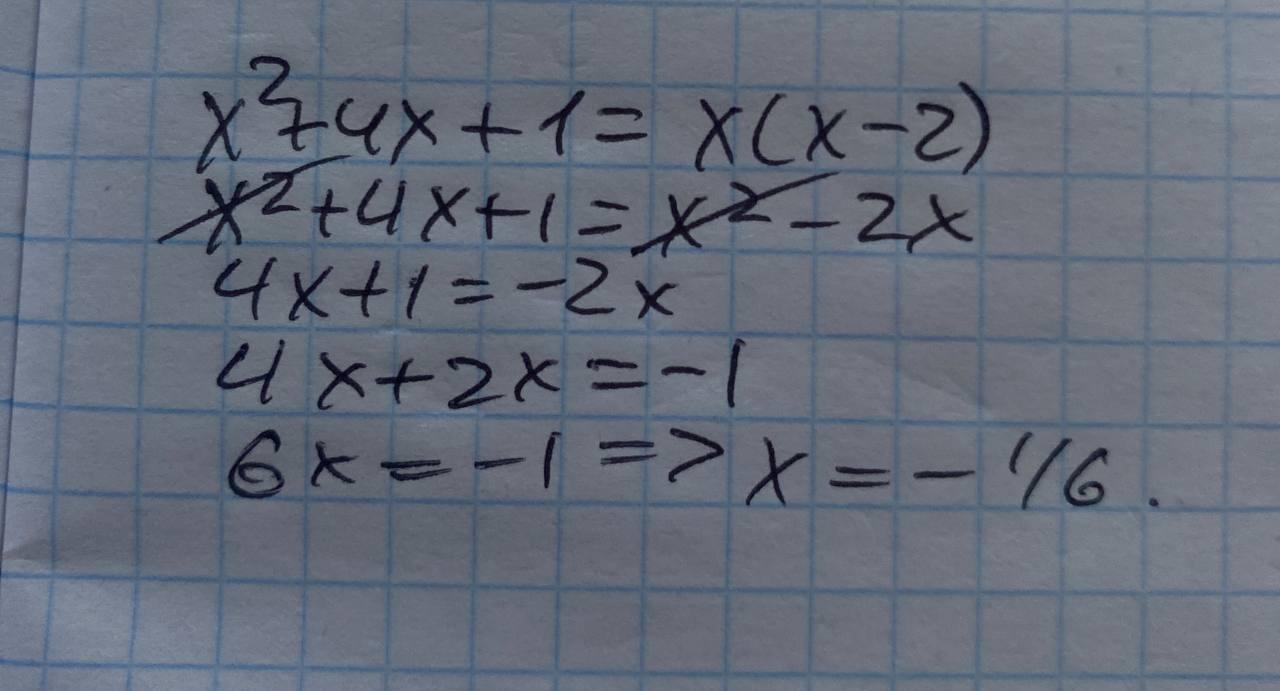 x²+4x+1=x(x-2)
x²+4x+1=x²-2x
4x+1=-2x
4x+2x=-1
6x=-1=>x=-1/6.